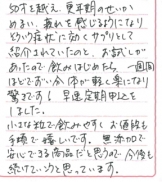 40才を越え、更年期のせいか
めまい、疲れを感じるようになり
どういう症状に効くサプリとして
紹介されていたのと、お試しが
あったので飲みはじめたら、一週間
ほどでずい分体が軽く楽になり
驚きです！早速定期申込を
しました。
小さな粒で飲みやすく、お値段も
手頃で続いてます。無添加で
安心できる商品だと思うので今後も
続けていこうと思っています。